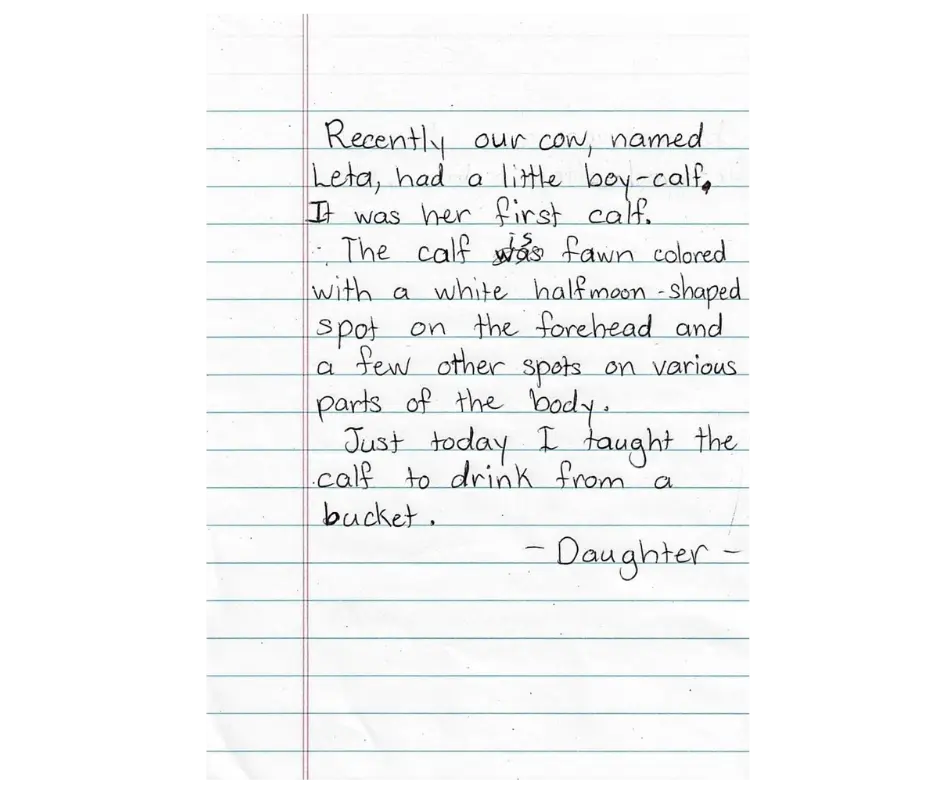 Recently our cow, named
Leta, had a little boy-calf.
It was her first calf.
The calf is fawn colored
with a white halfmoon-shaped
spot on the forehead and
a few other spots on various
parts of the body.
Just today I taught the
calf to drink from a
bucket.
- Daughter -